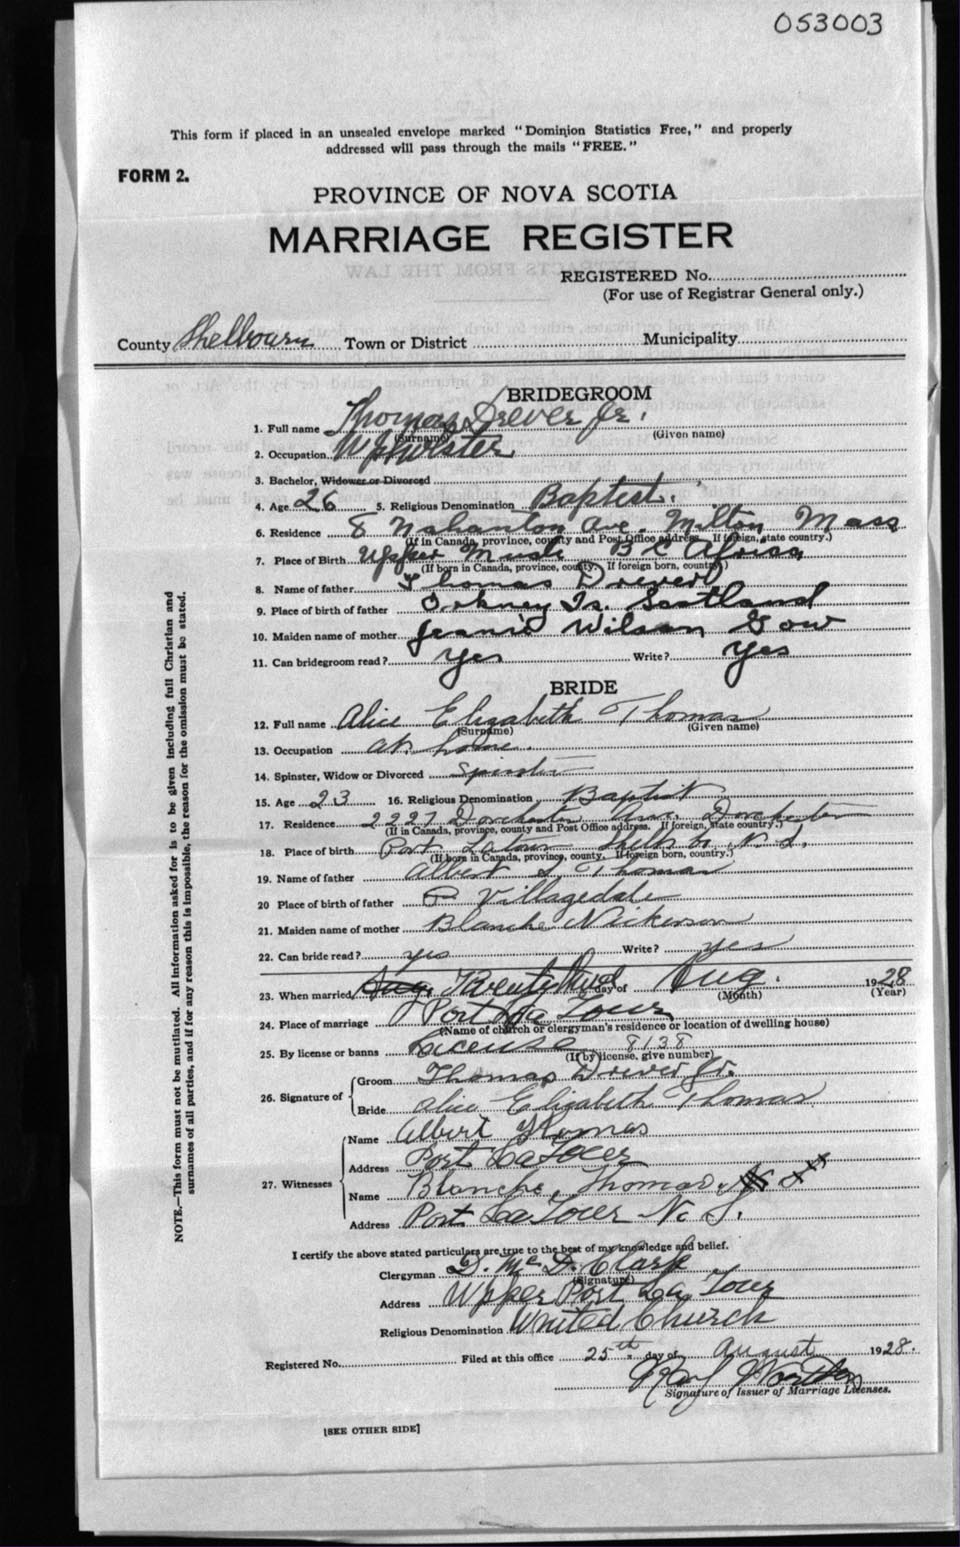 053003
This form if placed in an unsealed envelope marked "Dominion Statistics Free," and properly
addressed will pass through the mails "FREE."
FORM 2.
PROVINCE OF NOVA SCOTIA
MARRIAGE REGISTER
REGISTERED No.
(For use of Registrar General only.)
County Shelbourn Town or District Municipality
BRIDEGROOM
1. Full name Thomas Drever Jr.
(Surname) (Given name)
2. Occupation. Upholster
3. Bachelor, Widower or Divorced
4. Age 26 5. Religious Denomination Baptist.
6. Residence 8 Nahanton Ave. Milton Mass
(If in Canada, province, county and Post Office address. If foreign, state country.)
7. Place of Birth Upper B C Africa
(If born in Canada, province, county. If foreign born, country)
8. Name of father Thomas Drever
9. Place of birth of father Orkney Is. Scotland
10. Maiden name of mother Jeanie Wilson Gow
11. Can bridegroom read? yes Write? yes
BRIDE
12. Full name Alice Elizabeth Thomas
(Surname) (Given name)
13. Occupation at home.
14. Spinster, Widow or Divorced Spinster
15. Age 23 16. Religious Denomination Baptist
17. Residence 2227 Dorchester Ave. Dorchester
(If in Canada, province, county and Post Office address. If foreign, state country.)
18. Place of birth Port Latour Shelb Co N. S.
(If born in Canada, province, county. If foreign born, country.)
19. Name of father Albert Thomas
20 Place of birth of father Villagedale
21. Maiden name of mother Blanche Nickerson
22. Can bride read? yes Write? yes
23. When married Aug. Twenty third day of Aug. 1928
(Month) (Year)
24. Place of marriage Port La Tour
(Name of church or clergyman's residence or location of dwelling house)
25. By license or banns License 8138
(If by license, give number)
26. Signature of Groom Thomas Drever Jr.
Bride Alice Elizabeth Thomas
27. Witnesses Name Albert Thomas
Address Port La Tour
Name Blanche Thomas
Address Port La Tour N. S.
I certify the above stated particulars are true to the best of my knowledge and belief.
Clergyman D. Mc D. Clark
(Signature)
Address Upper Port La Tour
Religious Denomination United Church
Registered No. Filed at this office 25th day of August 1928.
Signature of Issuer of Marriage Licenses.
[SEE OTHER SIDE]
NOTE.—This form must not be mutilated. All information asked for is to be given including full Christian and
surnames of all parties, and if for any reason this is impossible, the reason for the omission must be stated.